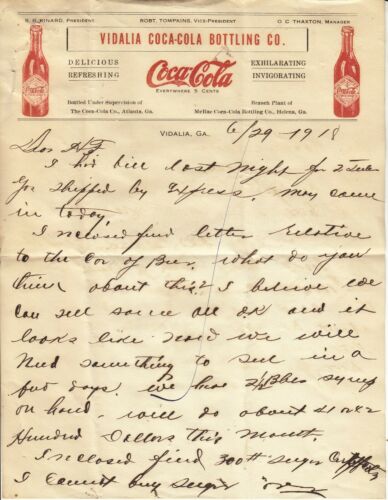 R. H. KINARD, PRESIDENT
ROBT. TOMPKINS, VICE-PRESIDENT
O C THAXTON, MANAGER
VIDALIA COCA-COLA BOTTLING CO.
DELICIOUS
REFRESHING
Coca-Cola
EVERYWHERE 5 CENTS
EXHILARATING
INVIGORATING
Bottled Under Supervision of
The Coca-Cola Co., Atlanta, Ga.
Branch Plant of
McRae Coca-Cola Bottling Co., Helena, Ga.
VIDALIA, GA. 6/29 1918
Dear
I had bill last night for 2
shipped by Express. may come
in today.
Inclosed find letter Relative
to the Car of Beer. what do you
think about this? I believe we
Can sell some all OK and it
looks like now we will
Need something to sell in a
few days. we have 2½ Bbls syrup
on hand. will do about
Hundred Dollars this Month.
Inclosed find 300# sugar
I cannot buy sugar